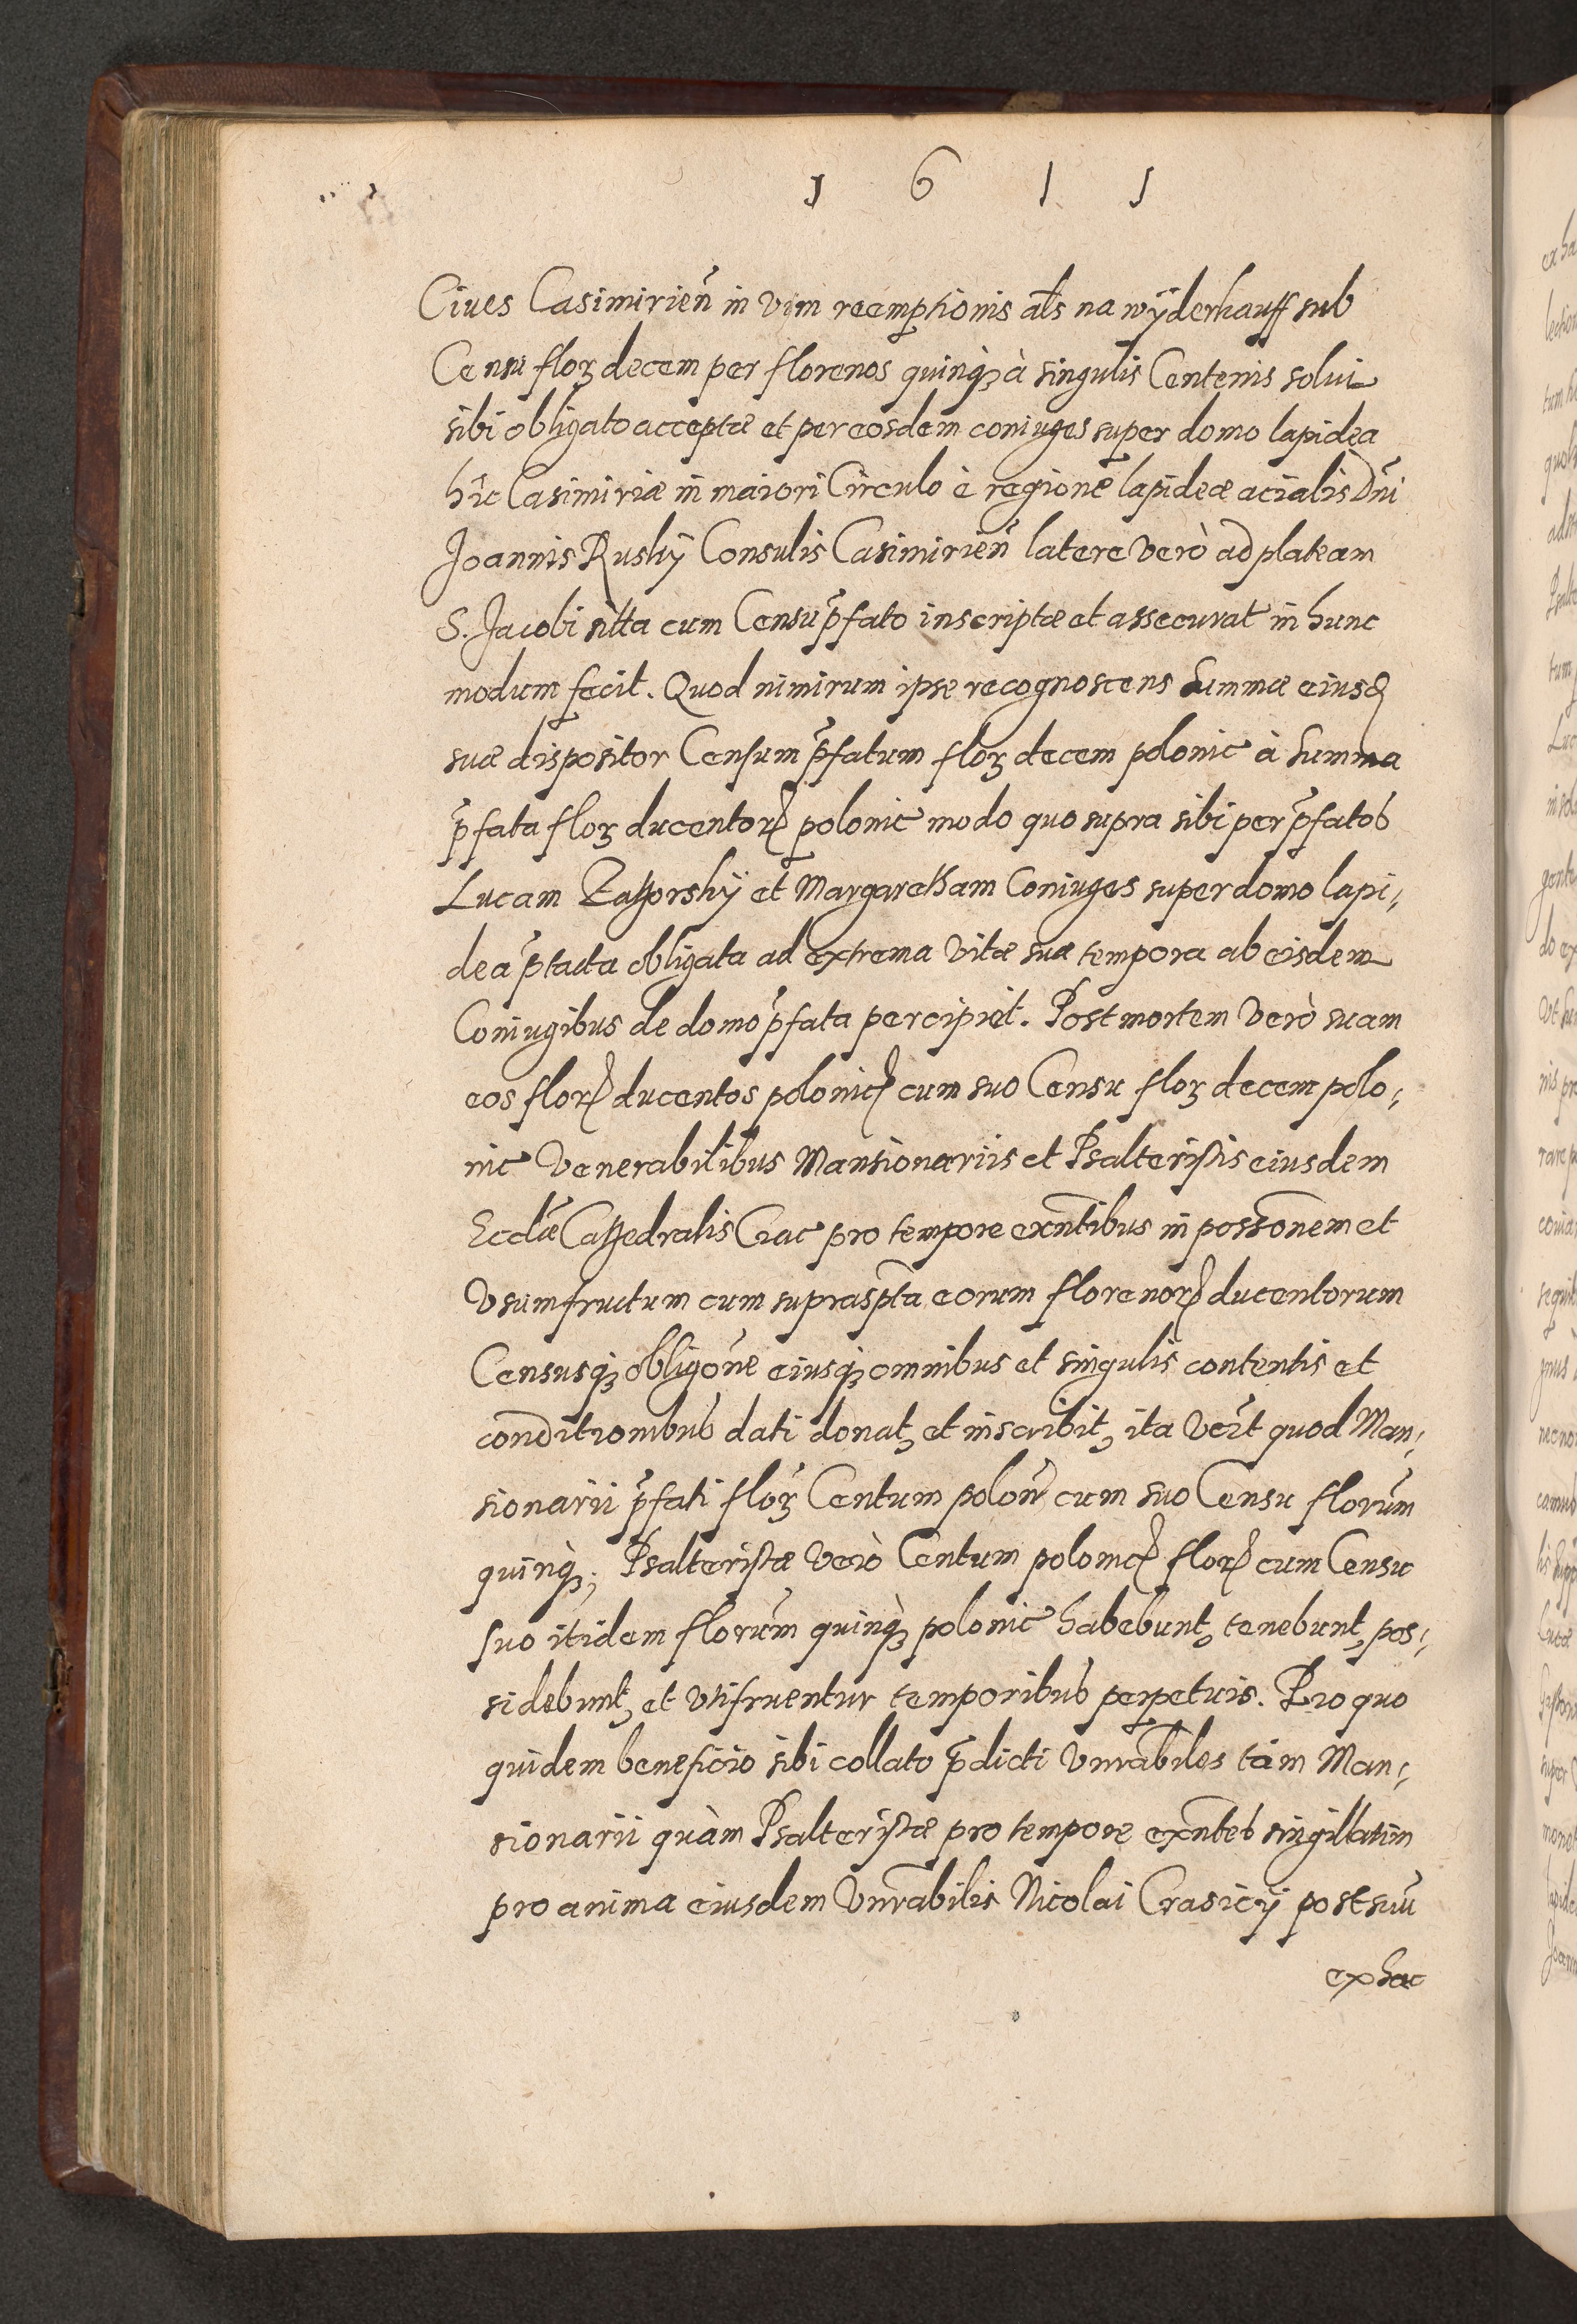 1 6 1 1
Ciues Casimirien̄ in vim reemptionis al̄s na wÿderkauff sub
Censu floꝝ decem per florenos quinqꝫ à singulis Centenis solui
sibi obligato acceptæ et per eosdem coniuges super domo lapidea
hîc Casimiriæ in maiori Circulo è regionē lapideæ acialis Dn̄i
Joannis Ruskÿ Consulis Casimirien̄ latere verò ad plateam
S. Jacobi sitta cum Censu p̄fato inscriptæ et assecurat in hunc
modum fecit. Quod nimirum ipse recognoscens Summæ eiusd
suæ dispositor Censum p̄fatum floꝝ decem polonic à Summa
p̄fata floꝝ ducentoꝝ polonic modo quo supra sibi per p̄fatos
Lucam Zathorskÿ et Margaretham Coniuges super domo lapi-
dea p̄tacta obligata ad extrema vitæ suæ tempora ab eisdem
Coniugibus de domo p̄fata percipiet. Post mortem verò suam
eos floꝝ ducentos polonic cum suo Censu floꝝ decem polo-
nic Venerabilibus Mansionariis et Psalteristis eiusdem
Eccl̄æ Cathedralis Crac pro tempore exn̄tibus in possonem et
Vsumfructum cum suprasp̄ta eorum florenoꝝ ducentorum
Censusqꝫ obligōne eiusqꝫ omnibus et singulis contentis et
conditionibus dati donat, et inscribit, ita vēit quod Man-
sionarii p̄fati floꝝ Centum polon̄ cum suo Censu florūm
quinqꝫ; Psalteristæ verò Centum polonic floꝝ cum Censu
suo itidem florūm quinqꝫ polonic habebunt, tenebunt, pos-
sidebunt, et vtifruentur temporibus perpetuis. Pro quo
quidem beneficio sibi collato p̄dicti Vnrābiles tàm Man-
sionarii quàm Psalteristæ pro tempore exn̄tes singillatim
pro anima eiusdem Vnrābilis Nicolai Crasicÿ post suū
ex hac